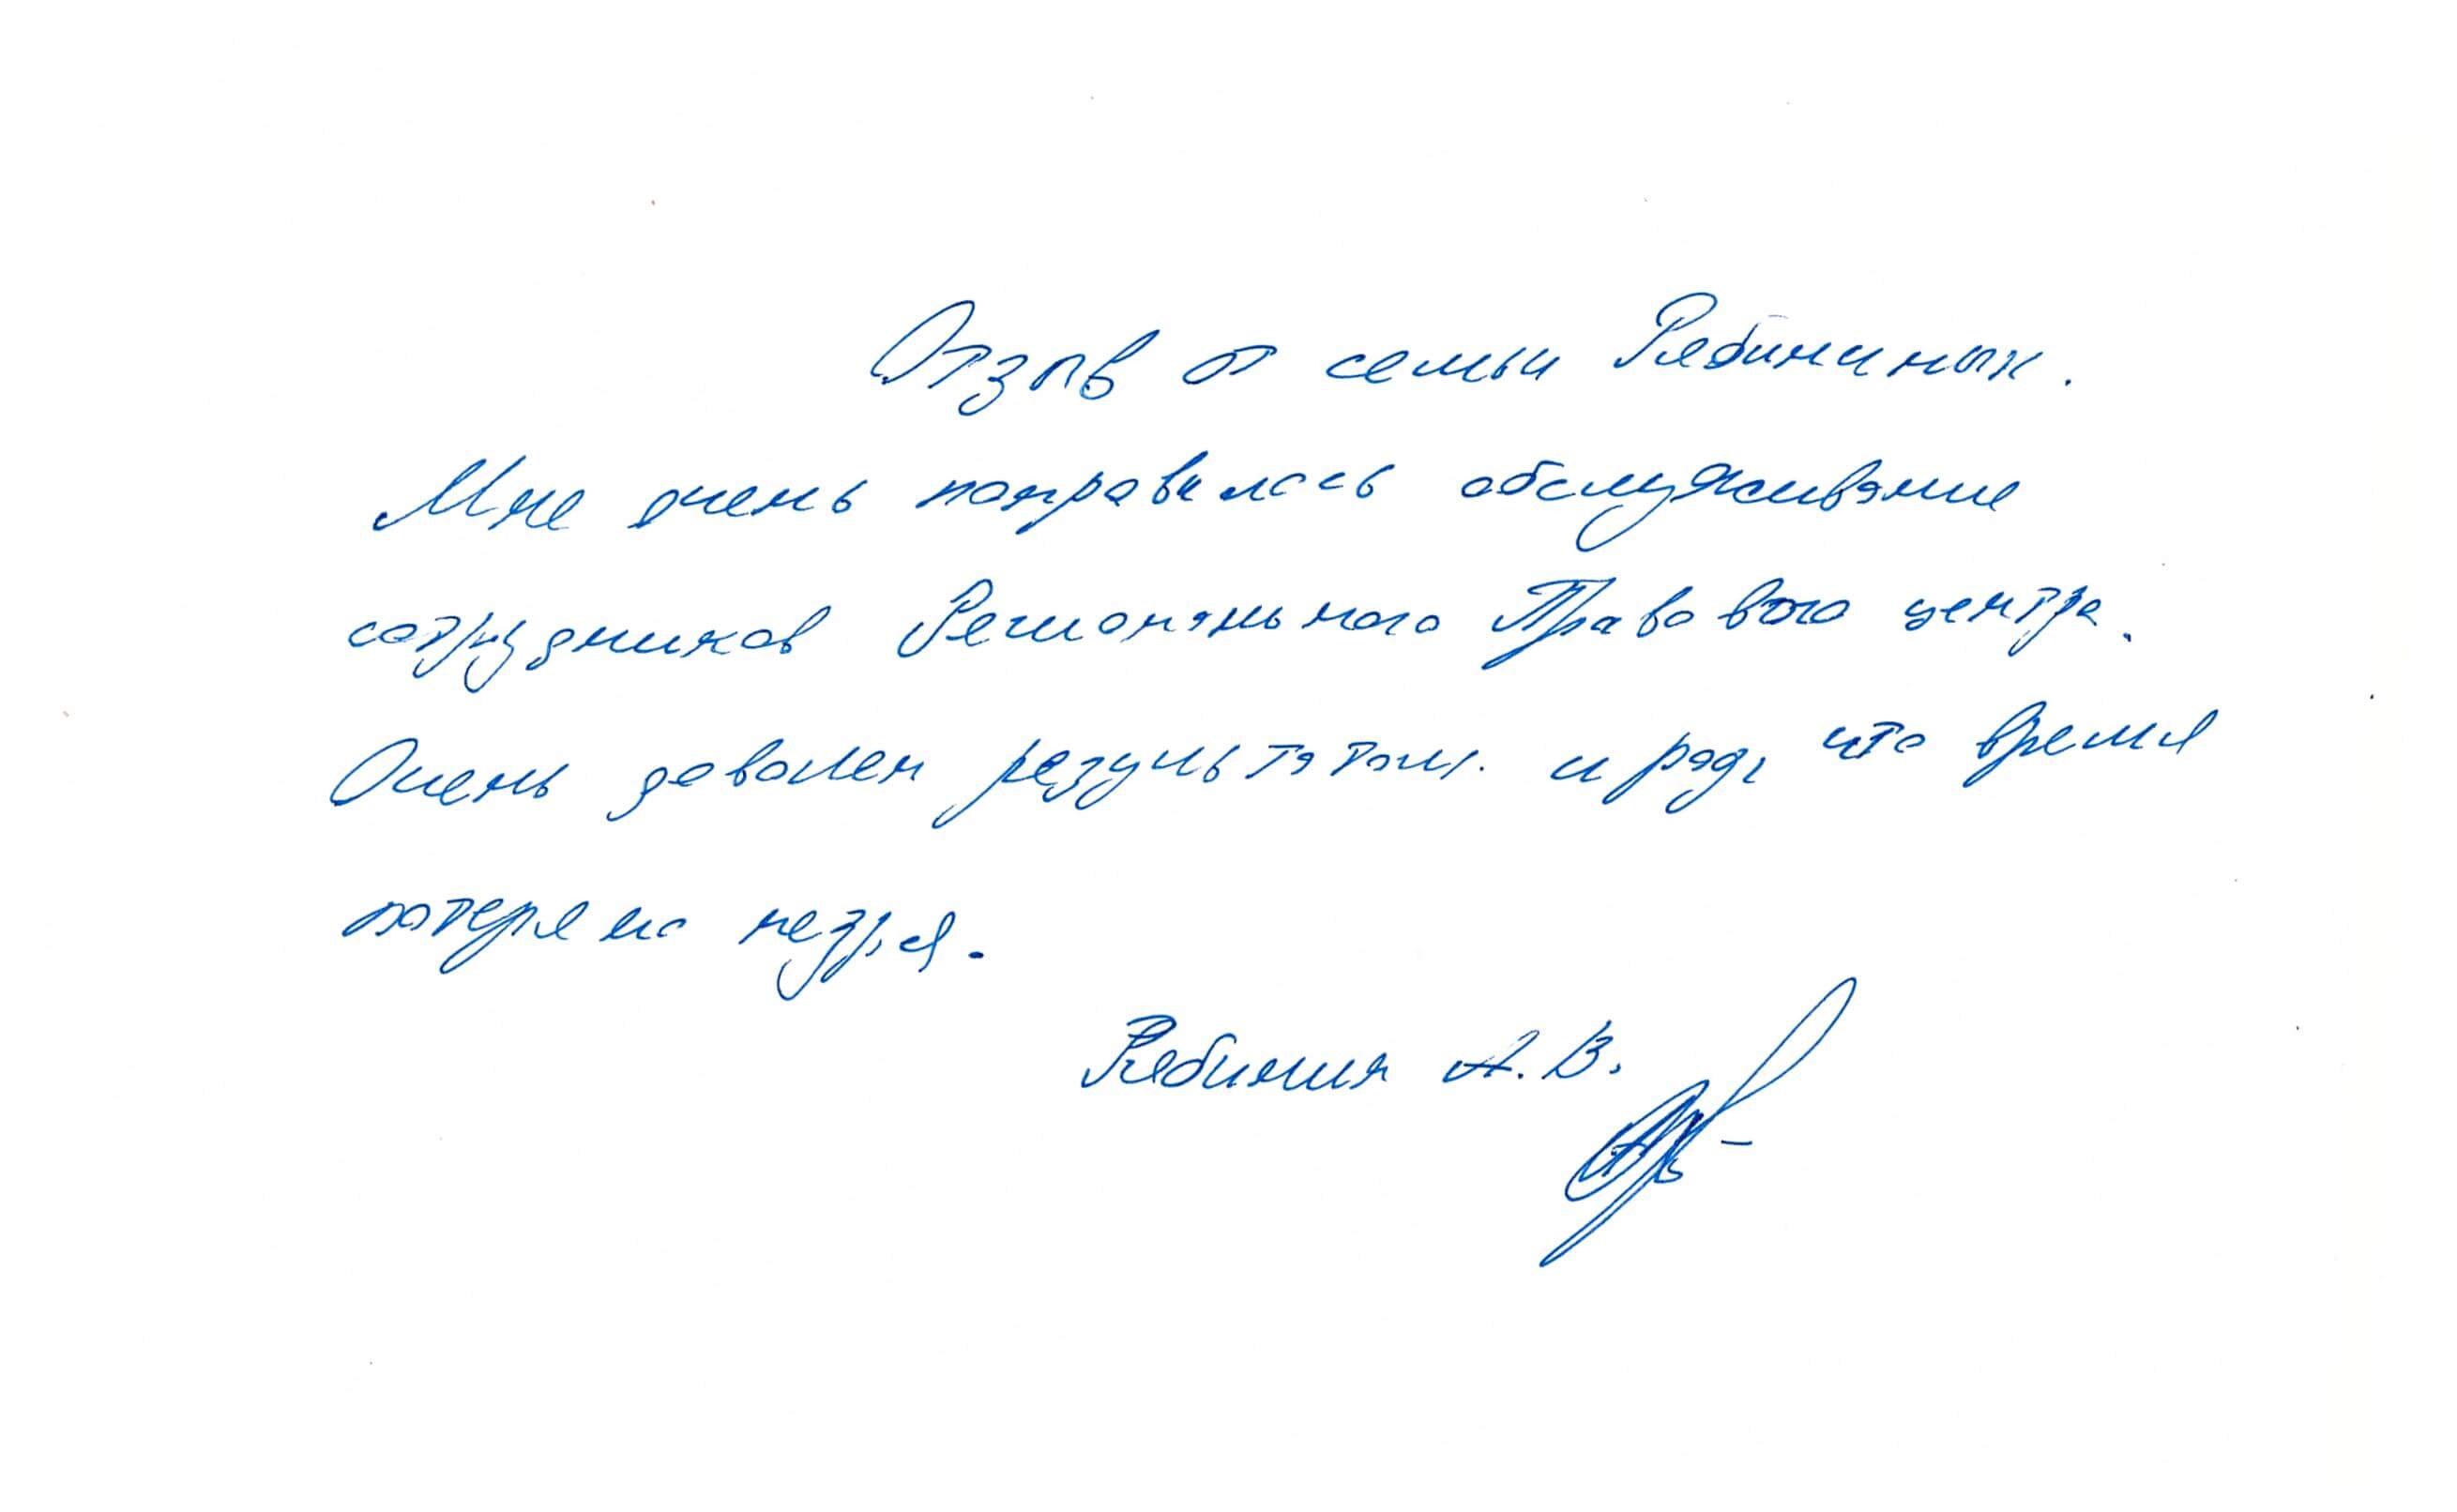 Отзыв от семьи Рябининых.
Мне очень понравилось обслуживание
сотрудников Регионального Правового центра.
Очень доволен результатом. и рад, что время
потеряно незря.
Рябинин А. В.